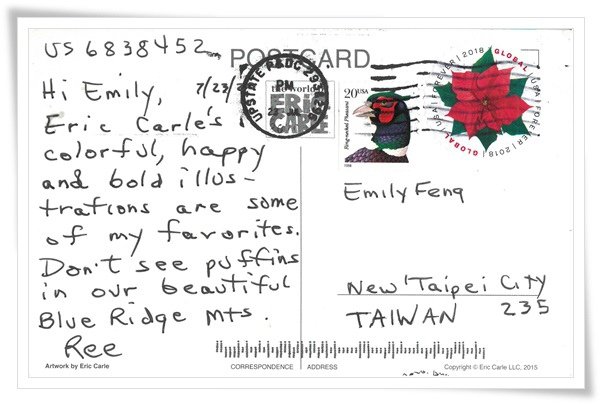 US 6838452
POSTCARD
Hi Emily,
7/23/
Eric Carle's
colorful, happy
and bold illus-
trations are some
of my favorites.
Don't see puffins
in our beautiful
Blue Ridge Mts.
Ree
Artwork by Eric Carle
CORRESPONDENCE
UPSTATE P&DC
PM
the world
ERIC
CARLE
20USA
Ring-necked Pheasant
1998
GLOBAL USA FOREVER 2018
GLOBAL USA FOREVER 2018
Emily Feng
New Taipei City
235
TAIWAN
ADDRESS
Copyright © Eric Carle LLC, 2015